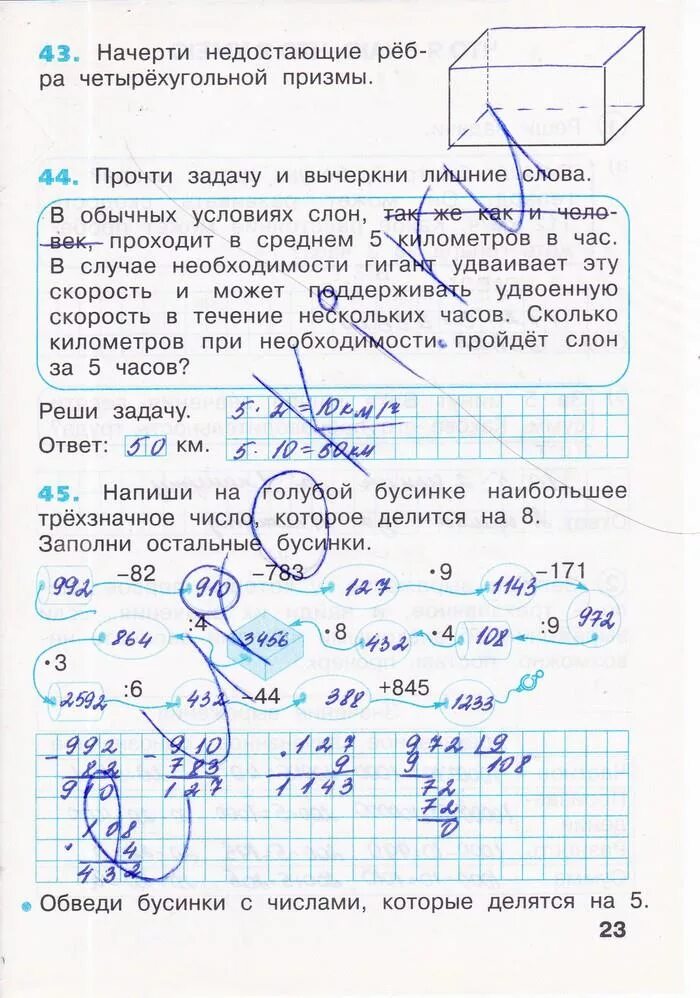 43. Начерти недостающие рёб-
ра четырёхугольной призмы.
44. Прочти задачу и вычеркни лишние слова.
В обычных условиях слон, так же как и чело-
век, проходит в среднем 5 километров в час.
В случае необходимости гигант удваивает эту
скорость и может поддерживать удвоенную
скорость в течение нескольких часов. Сколько
километров при необходимости пройдёт слон
за 5 часов?
Реши задачу. 5 · 2 = 10 км/ч
Ответ: 50 км. 5 · 10 = 50 км
45. Напиши на голубой бусинке наибольшее
трёхзначное число, которое делится на 8.
Заполни остальные бусинки.
992 –82 910 –783 127 ·9 1143 –171
864 :4 3456 ·8 432 ·4 108 :9 972
·3
2592 :6 432 –44 388 +845 1233
- 992 - 910 · 127 972 9
82 783 9 9 108
910 127 1143 72
108 72
· 4 0
432
• Обведи бусинки с числами, которые делятся на 5.
23